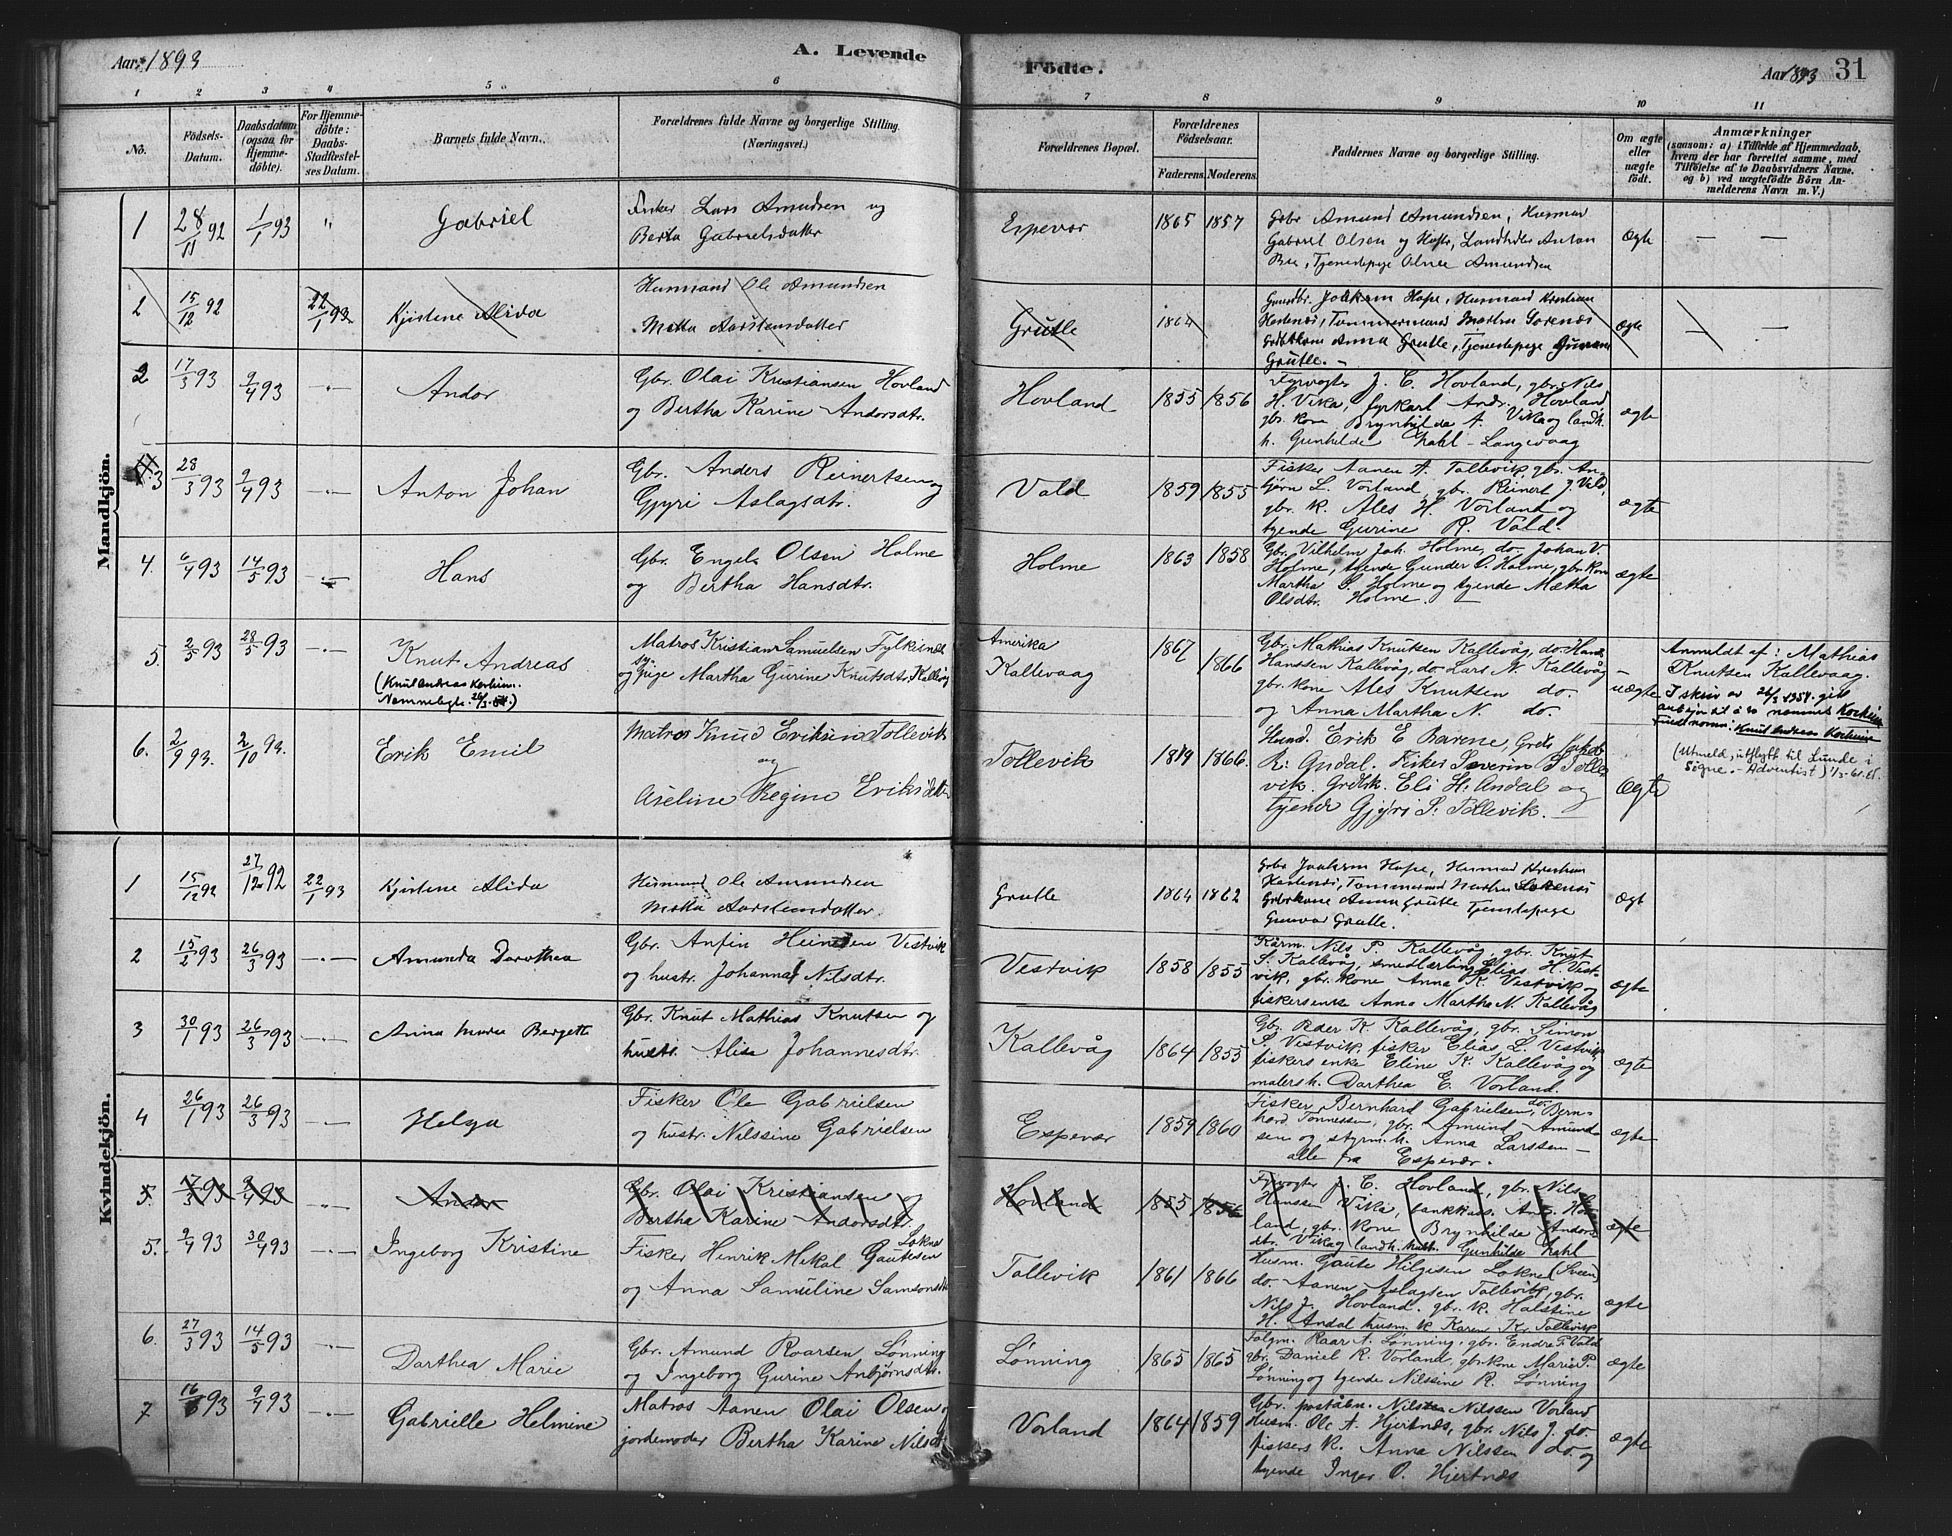 Aar 1893
A. Levende
Födte.
Aar 1893
31
1 2 3 4 5 6 7 8 9 10 11
No.
Födsels-
Datum.
Daabsdatum
(ogsaa for
Hjemme-
döbte).
For Hjemme-
döbte:
Daabs-
Stadfæstel-
ses Datum.
Barnets fulde Navn.
Forældrenes fulde Navne og borgerlige Stilling.
(Næringsvei.)
Forældrenes Bopæl.
Forældrenes
Födselsaar.
Faderens. Moderens.
Faddernes Navne og borgerlige Stilling.
Om ægte
eller
uægte
födt.
Anmærkninger
(saasom: a) i Tilfælde af Hjemmedaab,
hvem der har forrettet samme, med
Tilföielse af to Daabsvidners Navne,
og b) ved uægtefödte Börn An-
melderens Navn m. V.)
Mandkjön.
1 28/11 92 1/1 93 " Gabriel
Fisker Lars Amundsen og
Berta Gabrielsdatter
Espevær 1865 1857
Gbr Amund Amundsen, Husmand
Gabriel Olsen og Hustr, Landhdler Anton
Bu, Tjenestepige Olene Amundsen
Ægte — —
2 15/12 92 22/1 93 Kjistene Alida
Husmand Ole Amundsen
Metta Aarstensdatter
Grutle 1864
Gaardbr. Joakem Hope, Husmand Kristian
Hertenæs, Tømmermand Martin Sørenæs
Gaardbkone Anna Grutle, Tjenestepige Gunvor
Grutle. —
Ægte — —
2 17/3 93 9/4 93 —.— Andor
Gbr. Olai Kristiansen Hovland
og Bertha Karine Andorsdtr.
Hovland 1855 1856
Fyrvogter J. C. Hovland, gbr. Nils
H. Vika, fyrkarl Andr. Hovland
gbr. kone Brynhilda A. Vika og landh.
h. Gunhilde Dahl - Langevaag
ægte
3 28/3 93 9/4 93 —.— Anton Johan
Gbr. Anders Reinertsen og
Gjyri Aslagsdtr.
Vald 1859 1855
Fisker Aanen A. Tollevik, gbr. An-
bjørn L. Vorland, gbr. Reinert J. Vald,
gbr. k. Ales H. Vorland og
tyende Gurine R. Vald.
ægte
4. 6/4 93 14/5 93 —.— Hans
Gbr. Engel Olsen Holme
og Bertha Hansdtr.
Holme 1863 1858
Gbr. Vilhelm Joh. Holme, do. Johan V.
Holme, tyende Gunder O. Holme, gbr. kon
Martha O. Holme og tyende Mætha
Olsdtr. Holme. —
ægte
5. 2/5 93 28/5 93 —.— Knut Andreas
(Knut Andreas Korheim.
Navnebytte. 26/3.54.)
Matros Kristian Samuelsen Fylkesnæs
og pige Martha Gurine Knutsdtr. Kallevåg
Amerika
Kallevaag
1867 1866
Gbr. Mathias Knutsen Kallevåg, do Hans
Hanssen Kallevåg, do Lars N. Kallevåg
gbr. kone Ales Knutsen do.
og Anna Martha N. do.
uægte
Anmeldt af: Mathias
Knutsen Kallevaag.
I skriv av 26/3 1954. gitt
Fullt navn: Knut Andreas Korheim
(Utmeld, utflytt til Lunde i
Søgne. - Adventist)
6. 2/9 93. 2/10 93. Erik Emil
Matros Knud Eriksen Tollevik
og
Aseline Regine Eriksdatter
Tollevik 1866.
Husmd. Erik E Barene, Grdb
R. Andal. Fisker Severin S Tolle-
vik. Grdbk. Eli H. Andal og
tyende Gjyri S. Tollevik. —
Ægte
Kvindekjön.
1 15/12 92 27/12 92 22/1 93 Kjistene Alida
Husmand Ole Amundsen
Metta Aarstensdatter.
Grutle 1864 1862
Grbr Joakem Hope, Husmand Kristian
Hertenæs, Tømmermand Martin Sørenæs
Grbrkone Anna Grutle Tjenestepige
Gunvor Grutle.
Ægt
2 15/2 93 26/3 93 —.— Amunda Dorothea
Gbr. Anfin Heinsen Vestvik
og hustr. Johanna Nilsdtr.
Vestvik 1858 1855
Kårm. Nils P. Kallevåg, gbr. Knut
S. Kallevåg, smedlærling Elias H. Vest-
vik, gbr. kone Anna K. Vestvik og
fiskersenke Anna Martha N. Kallevåg
ægte
3 30/1 93 26/3 93 —.— Anna Marie Bergette
Gbr. Knut Mathias Knutsen og
hustr. Alise Johannesdtr.
Kallevåg 1864 1855
Gbr. Peder K. Kallevåg, gbr. Simon
S. Vestvik, fisker Elias L. Vestvik
fiskers enke Eline K. Kallevåg og
maters h. Darthea E. Vorland
ægte
4 26/1 93 26/3 93 —.— Helga
Fisker Ole Gabrielsen
og hustr. Nilssine Gabrielsen
Espevær 1859 1860
Fisker Bernhard Gabrielsen, do. Bern-
hard Tønnessen, gbr. Amund Amund-
sen og styrm. h. Anna Larssen —
alle fra Espevær.
ægte
5. 17/3 93 9/4 93 —.— Andor
Gbr. Olai Kristiansen og
Bertha Karine Andorsdtr.
Hovland 1855 1856
Fyrvogter J. C. Hovland, gbr. Nils
Hanssen Vika, Andr. Hov-
land, gbr. kone Brynhilde Anders-
dtr. Vika og landh. hustr. Gunhilde Dahl
ægte
5. 9/4 93 30/4 93 —.— Ingeborg Kristine
Fisker Henrik Mekal Gautesen Løkne
og Anna Samuline Samsonsdtr
Tollevik 1861 1866
Husm. Gaute Hilgesen Løkne (Sveen)
do. Aanen Aslagsen Tollevik, gbr.
Nils J. Hovland. gbr. k. Halstine
H. Andal husm. k Karen Kr. Tollevik
ægte
6. 27/3 93 14/5 93 —.— Darthea Marie
Gbr. Amund Roarsen Lønning
og Ingeborg Gurine Anbjørnsdtr.
Lønning 1865 1865
Følgm. Roar A. Lønning, gbr. Endre P. Vald
gbr. Daniel R. Vorland, gbr. kone Marie P.
Lønning og tyende Nilssine R. Lønning
ægte
7 16/3 93 9/4 93 —.— Gabrielle Helmine
Matros Aanen Olai Olsen og
jordemoder Bertha Karine Nilsdt
Vorland 1864 1859
Gbr. poståbn. Nils Nilssen Vorland
Husm. Ole A. Hjertnæs, gbr. Nils J. do.
fiskers k. Anna Nilssen do. og
tyende Inger O. Hjertnæs
ægte